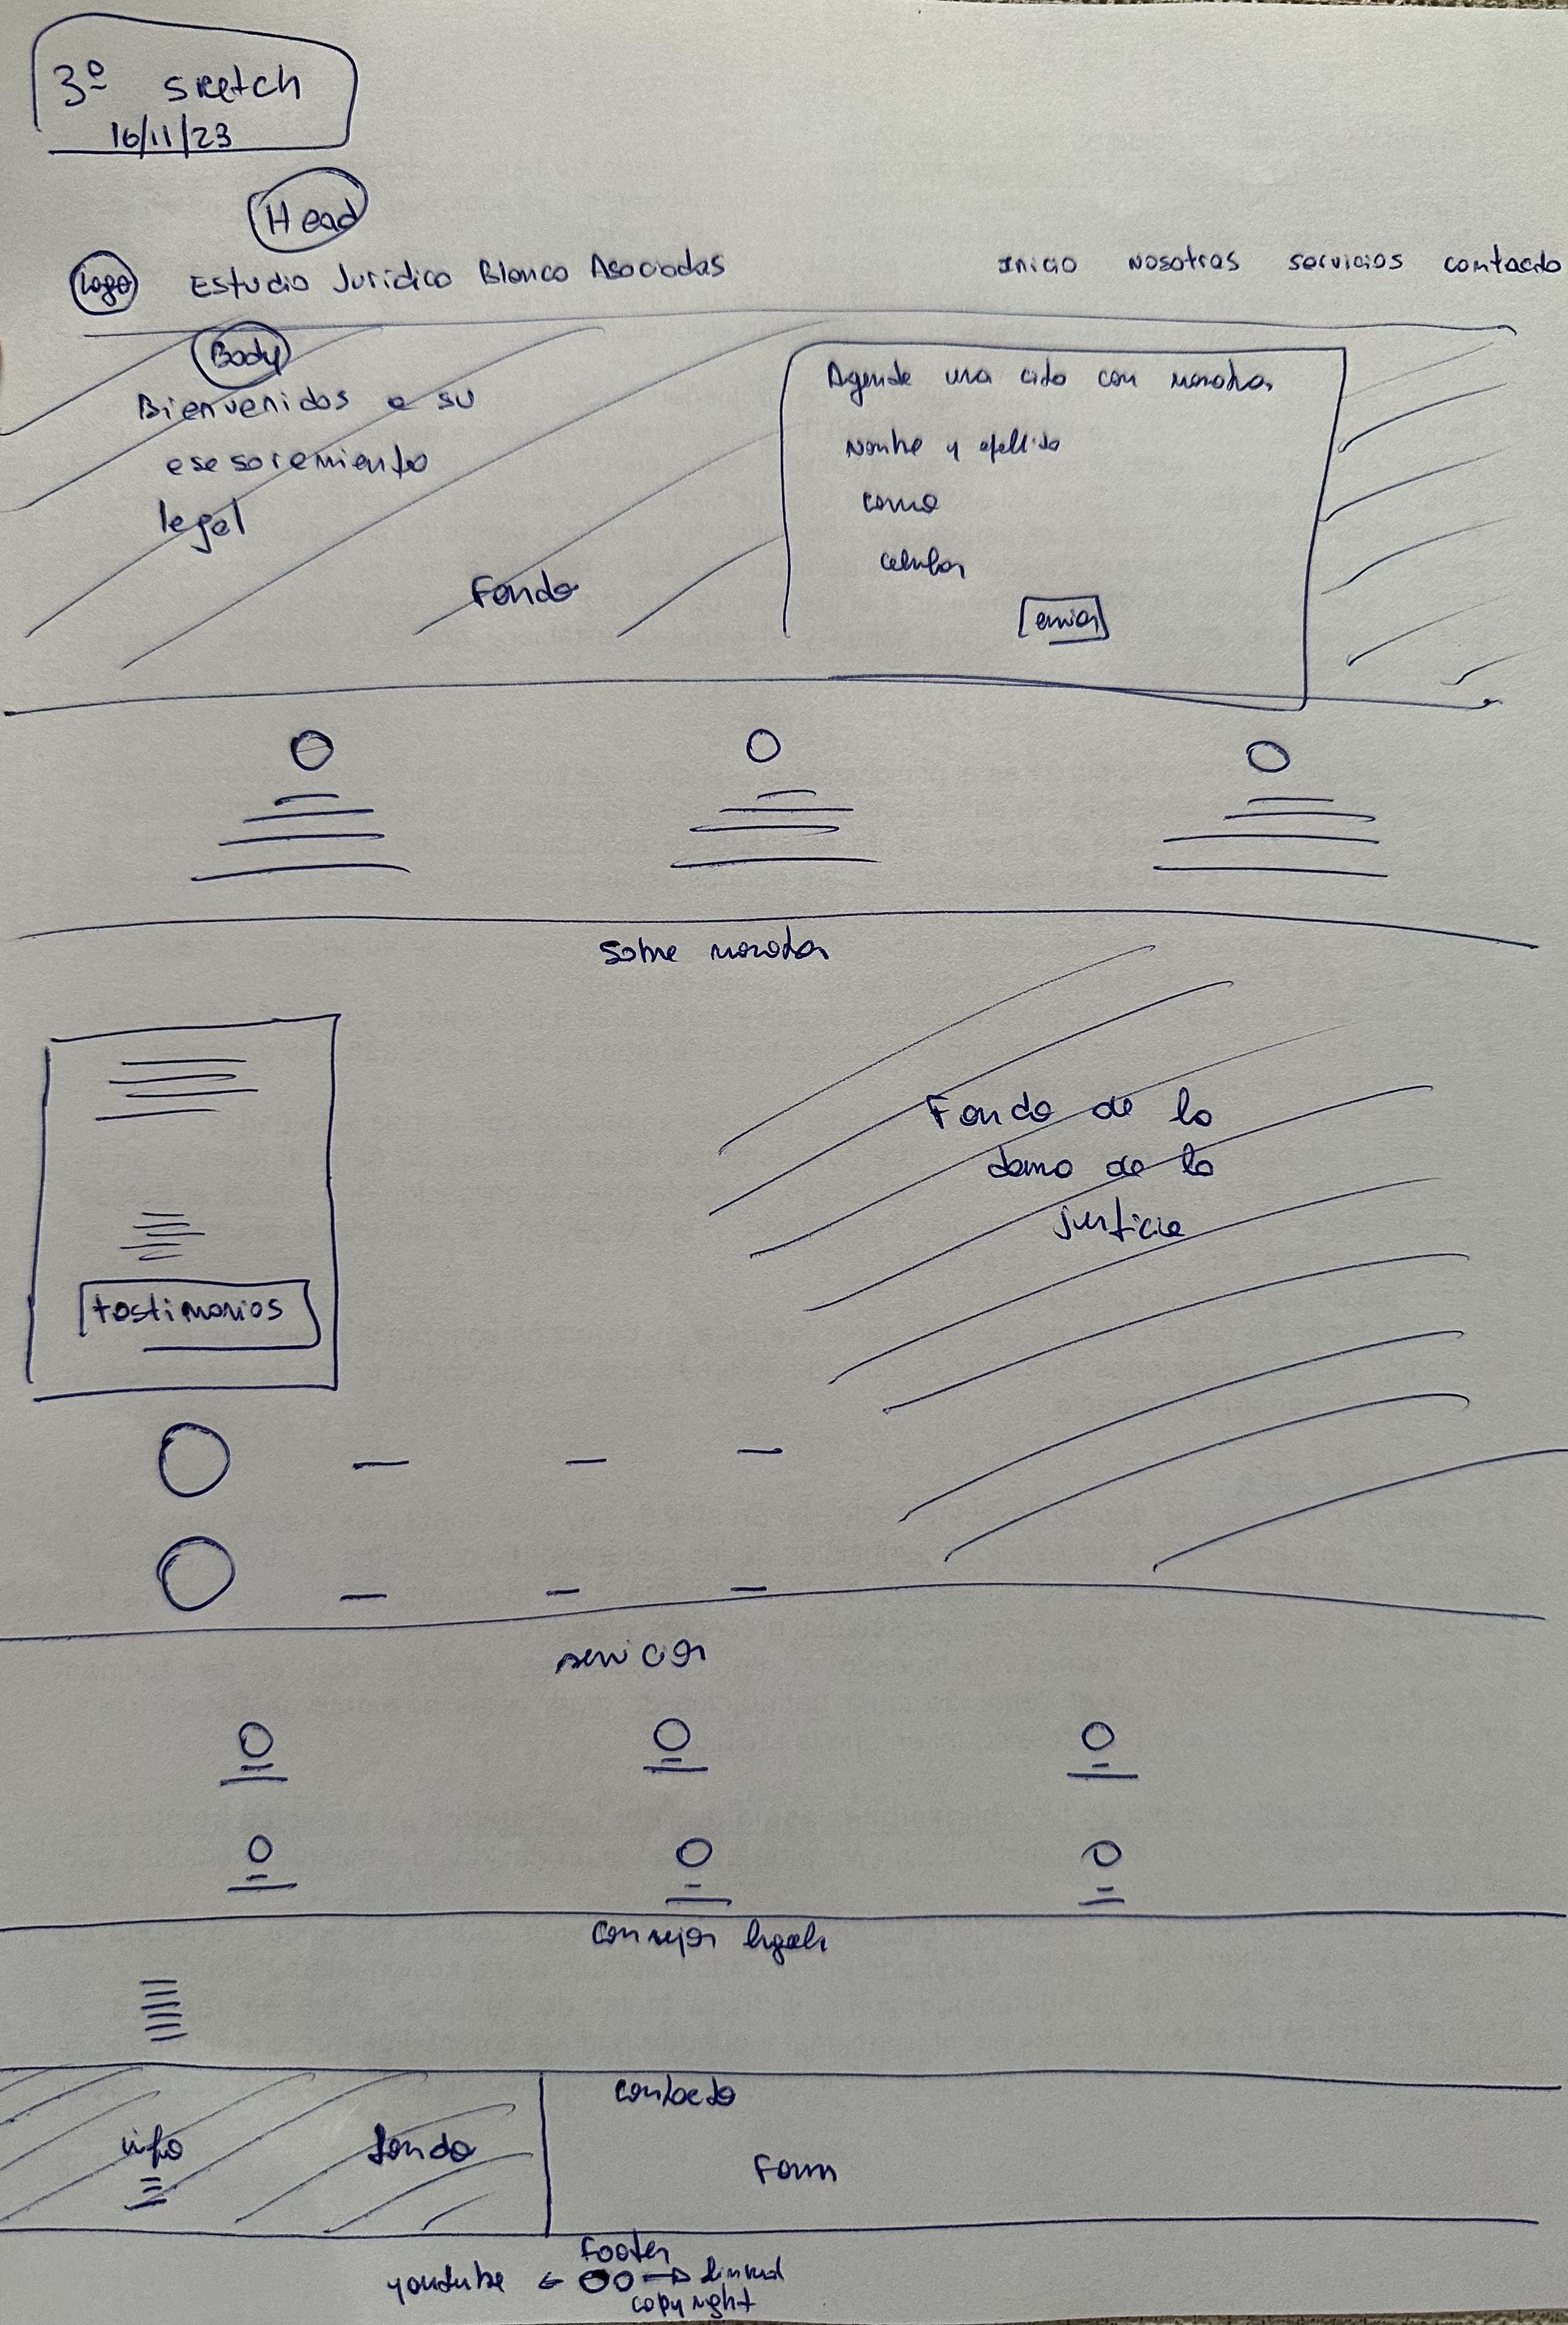 3º sketch
16/11/23
Head
Logo Estudio Jurídico Blanco Asociadas Inicio Nosotras servicios contacto
Body
Bienvenidos a su
asesoramiento
legal
Fondo
Agende una cita con nosotros
Nombre y apellido
correo
celular
enviar
Sobre nosotros
Fondo de la
dama de la
justicia
testimonios
servicios
Consejos legales
info fondo
Contacto
Form
Footer
youtube linked
copyright